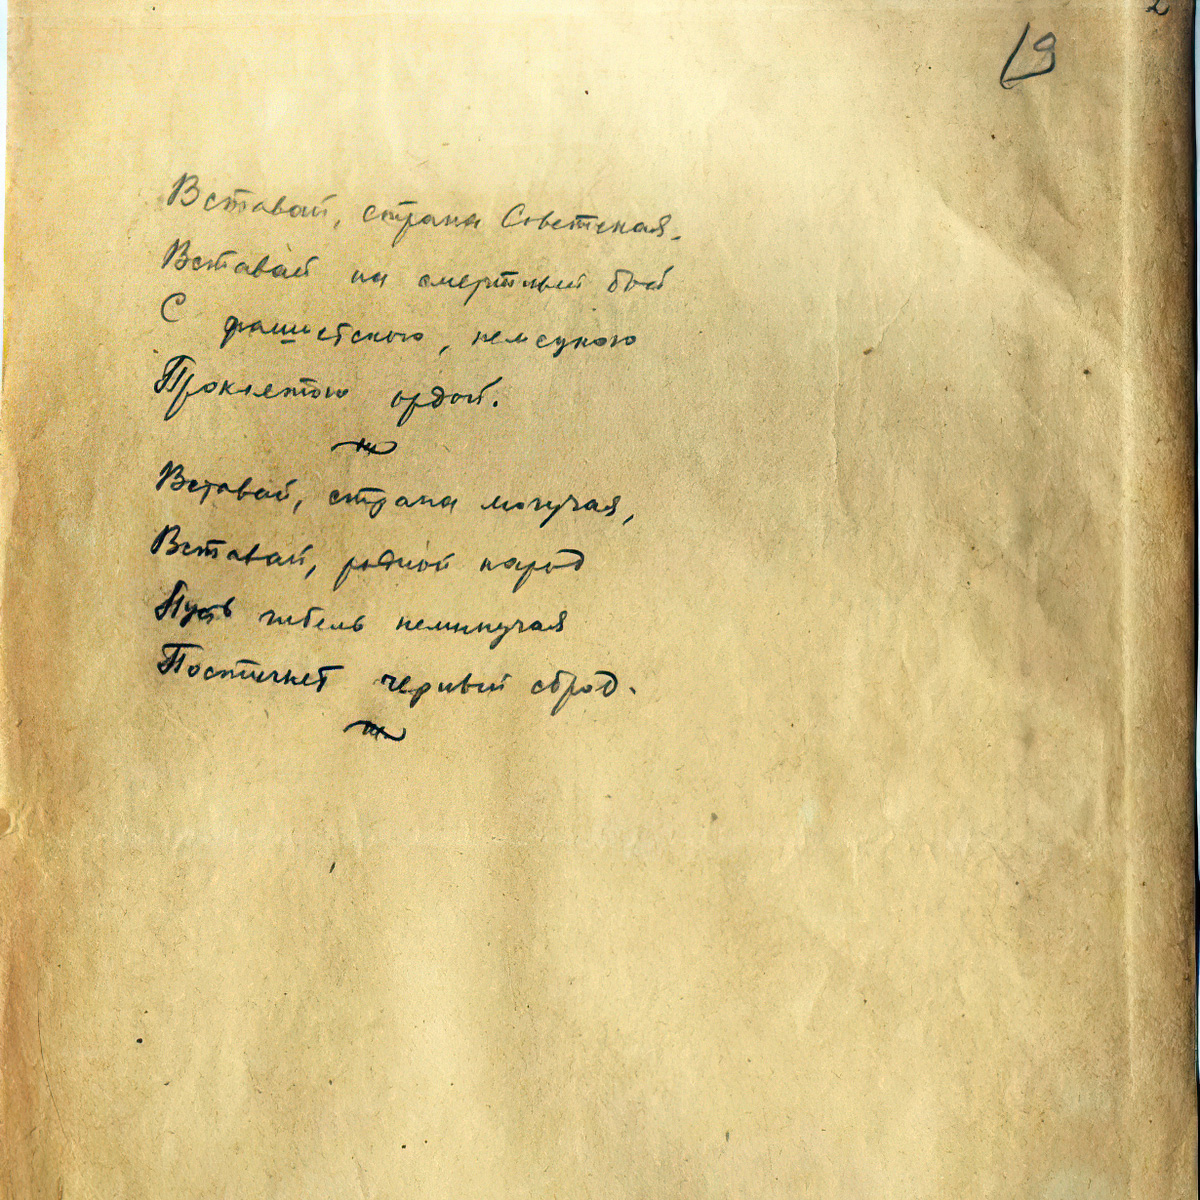 2
19
Вставай, страна Советская,
Вставай на смертный бой
С фашистскою, немецкою
Проклятою ордой.
Вставай, страна могучая,
Вставай, родной народ
Пусть гибель неминучая
Постигнет черный сброд.